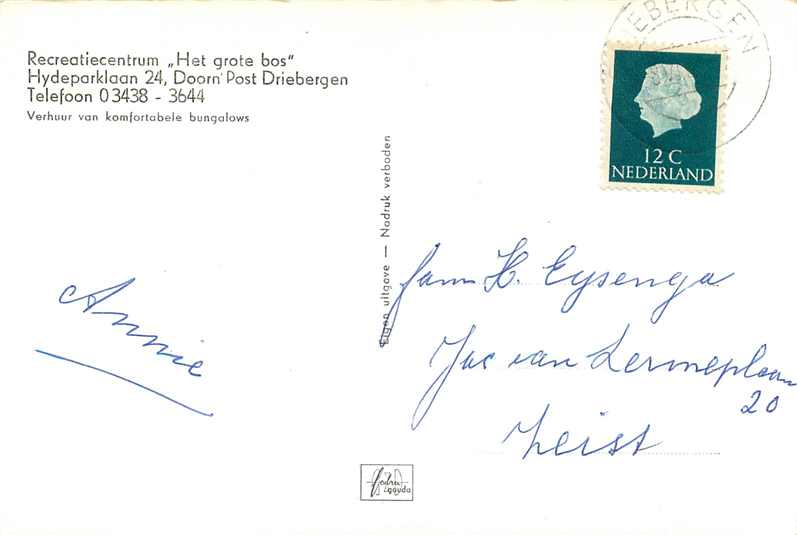 Recreatiecentrum „Het grote bos"
Hydeparklaan 24, Doorn Post Driebergen
Telefoon 03438 - 3644
Verhuur van komfortabele bungalows
EBERGEN
12 C
NEDERLAND
Eigen uitgave — Nadruk verboden
Annie
Fam H. Eysenga
Jac van Lenneplaan
20
Zeist
gouda